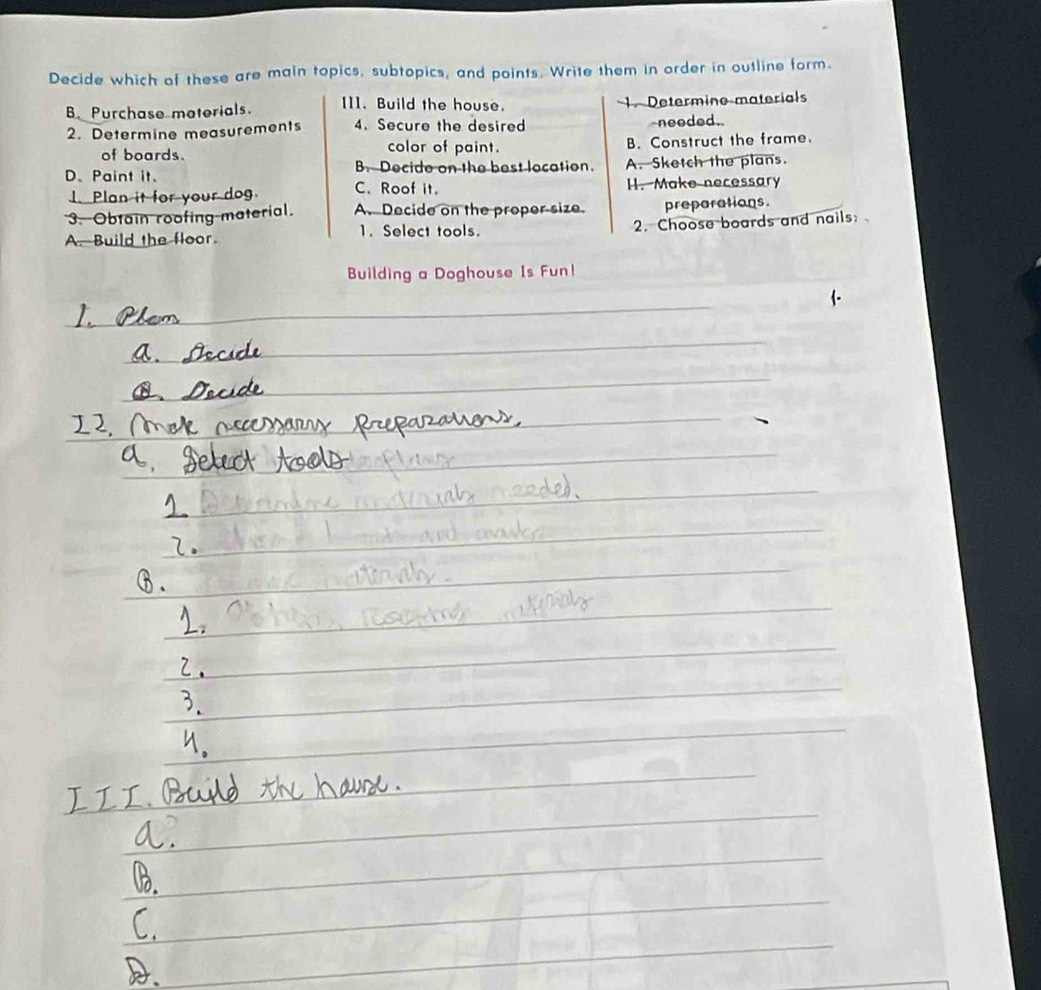 Decide which of these are main topics, subtopics, and points. Write them in order in outline form.
B. Purchase materials.
2. Determine measurements
of boards.
D. Paint it.
I. Plan it for your dog.
3. Obtain roofing material.
A. Build the floor.
III. Build the house.
4. Secure the desired
color of paint.
B. Decide on the best location.
C. Roof it.
A. Decide on the proper size.
1. Select tools.
1. Determine materials
needed.
B. Construct the frame.
A. Sketch the plans.
II. Make necessary
preparations.
2. Choose boards and nails.
Building a Doghouse Is Fun!
1.
I. Plan
a. Decide
B. Decide
II. Make necessary preparations.
a. Select tools
1 Determine materials needed.
2.
B. materials.
1. Obtain roofing materials
2.
3.
4.
III. Build the house.
a.
B.
C.
D.